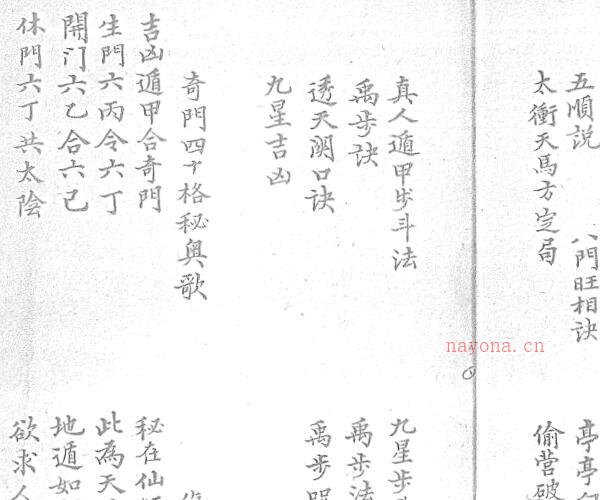 五順説
八門旺相訣
亭亭
太衝天馬方定局
偷营破
真人遁甲步斗法
九星步
禹步訣
禹步法
透天關口訣
禹步咒
九星吉凶
奇門四十格秘奥歌
吉凶遁甲合奇門
秘在仙
生門六丙令六丁
此為天
開门六乙合六己
地遁如
休門六丁共太陰
欲求人
nayona.cn